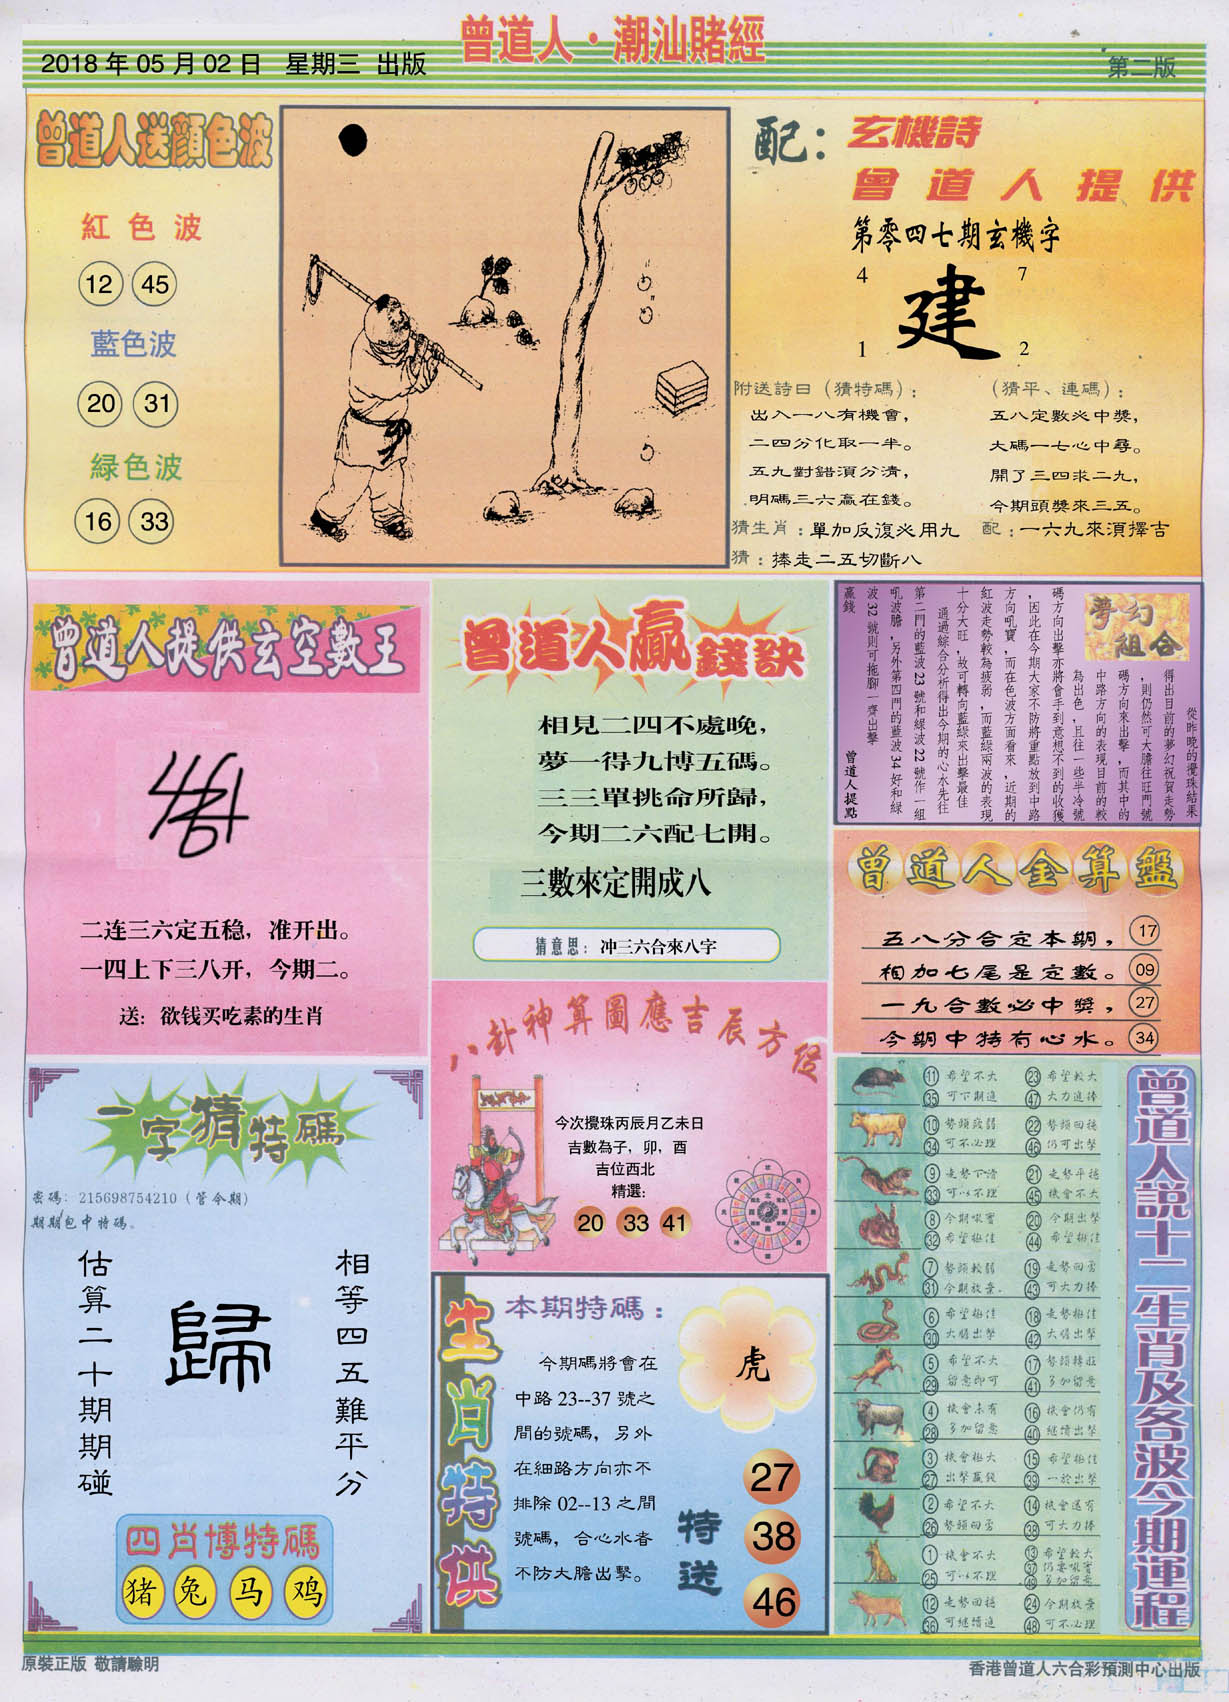 曾道人·潮汕賭經
2018 年 05 月 02 日 星期三 出版
第二版
曾道人送顏色波
紅色波
12 45
藍色波
20 31
緑色波
16 33
配：玄機詩
曾道人提供
第零四七期玄機字
4 7
建
1 2
附送詩曰（猜特碼）：
出入一八有機會，
二四分化取一半。
五九對錯須分清，
明碼三六贏在錢。
（猜平、連碼）：
五八定數必中獎，
大碼一七心中尋。
開了三四求二九，
今期頭獎來三五。
猜生肖：單加反復必用九
配：一六九來須擇吉
猜：捧走二五切斷八
曾道人提供玄空數王
二连三六定五稳，准开出。
一四上下三八开，今期二。
送：欲钱买吃素的生肖
曾道人贏錢訣
相見二四不處晚，
夢一得九博五碼。
三三單挑命所歸，
今期二六配七開。
三數來定開成八
猜意思：冲三六合來八字
夢幻
組合
從昨晚的攪珠結果
得出目前的夢幻祝賀走勢
，則仍然可大膽往旺門號
碼方向來出擊，而其中的
中路方向的表現目前的較
為出色，且往一些半冷號
碼方向出擊亦將會手到意想不到的收獲
，因此在今期大家不防將重點放到中路
方向吼寶，而在色波方面看來，近期的
紅波走勢較為疲弱，而藍綠兩波的表現
十分大旺，故可轉向藍綠來出擊最佳
通過綜合分析得出今期的心水先往
第二門的藍波 23 號和綠波 22 號作一組
吼波膽，另外第四門的藍波 34 好和綠
波 32 號則可拖腳一齊出擊
贏錢
曾道人提點
曾道人金算盤
五八分合定本期， 17
相加七尾是定數。 09
一九合數必中獎， 27
今期中特有心水。 34
八卦神算圖應吉辰方位
今次攪珠丙辰月乙未日
吉數為子，卯，酉
吉位西北
精選：
20 33 41
一字猜特碼
密碼：215698754210（管今期）
期期包中特碼。
相等四五難平分
歸
估算二十期期碰
四肖博特碼
猪 兔 马 鸡
生肖特供
本期特碼：
虎
今期碼將會在
中路 23--37 號之
間的號碼，另外
在細路方向亦不
排除 02--13 之間
號碼，合心水者
不防大膽出擊。
特送
27
38
46
曾道人説十二生肖及各波今期運程
11 希望不大 23 希望較大
35 可下期進 47 大力進捧
10 勢頭較弱 22 勢頭回穩
34 可不必理 46 仍可出擊
9 走勢下滑 21 走勢平穩
33 可以不理 45 機會不大
8 今期吼寶 20 今期出擊
32 希望極佳 44 希望極佳
7 勢頭較弱 19 走勢回勇
31 今期放棄. 43 可大力捧
6 希望極佳 18 走勢極佳
30 大膽出擊 42 大膽出擊
5 希望不大 17 勢頭轉旺
29 留意即可 41 多加留意
4 機會未有 16 機會仍有
28 多加留意 40 繼續出擊
3 機會極大 15 希望極佳
27 出擊贏錢 39 一於出擊
2 希望不大 14 機會還有
26 勢頭回勇 38 可大力捧
1 機會不大 13 希望較大
25 可以不理 37 仍要吼實
49 多加留意
12 走勢回穩 24 今期放棄
36 可繼續進 48 可不必理
原裝正版 敬請驗明
香港曾道人六合彩預測中心出版